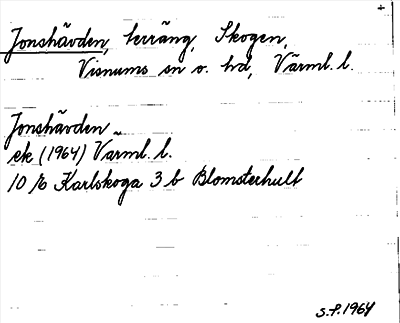 Jonshävden, terräng, Skogen,
Visnums sn o. hd, Värml. l.
Jonshävden
ek (1964) Värml. l.
10 E Karlskoga 3 b Blomsterhult
S.P. 1964